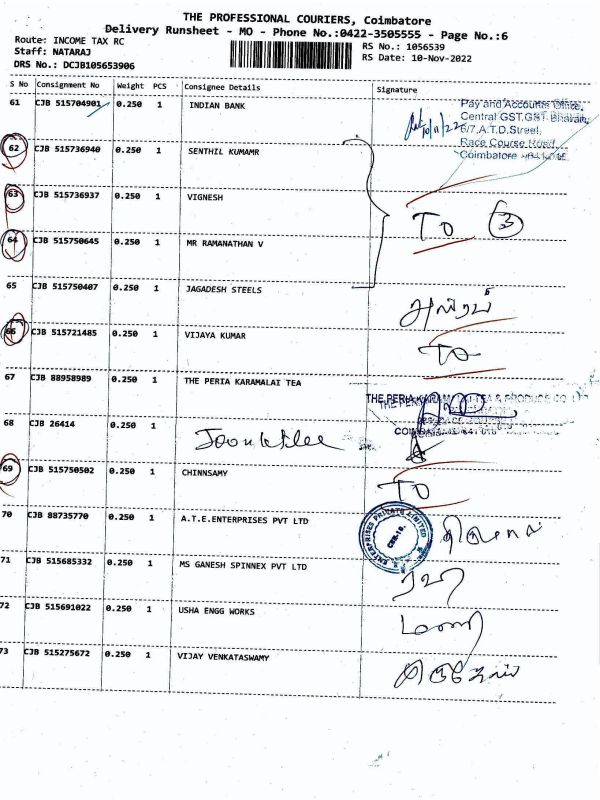 THE PROFESSIONAL COURIERS, Coimbatore
Delivery Runsheet - MO - Phone No.:0422-3505555 - Page No.:6
Route: INCOME TAX RC
RS No.: 1056539
Staff: NATARAJ
RS Date: 10-Nov-2022
DRS No.: DCJB105653906
S No Consignment No Weight PCS Consignee Details Signature
61 CJB 515704901 0.250 1 INDIAN BANK
Pay and Accounts Office,
Central GST.GST Bhavan,
6/7,A.T.D.Street,
10/11/22
Race Course Road,
Coimbatore
62 CJB 515736940 0.250 1 SENTHIL KUMAMR
63 CJB 515736937 0.250 1 VIGNESH
TO 3
64 CJB 515750645 0.250 1 MR RAMANATHAN V
65 CJB 515750407 0.250 1 JAGADESH STEELS
66 CJB 515721485 0.250 1 VIJAYA KUMAR
TO
67 CJB 88958989 0.250 1 THE PERIA KARAMALAI TEA
THE PERIA KARAMALAI TEA & PRODUCE CO. LTD
68 CJB 26414 0.250 1
69 CJB 515750502 0.250 1 CHINNSAMY
TO
70 CJB 88735770 0.250 1 A.T.E.ENTERPRISES PVT LTD
ENTERPRISES PRIVATE LIMITED
CBE-18.
71 CJB 515685332 0.250 1 MS GANESH SPINNEX PVT LTD
ரவி
72 CJB 515691022 0.250 1 USHA ENGG WORKS
மணி
73 CJB 515275672 0.250 1 VIJAY VENKATASWAMY